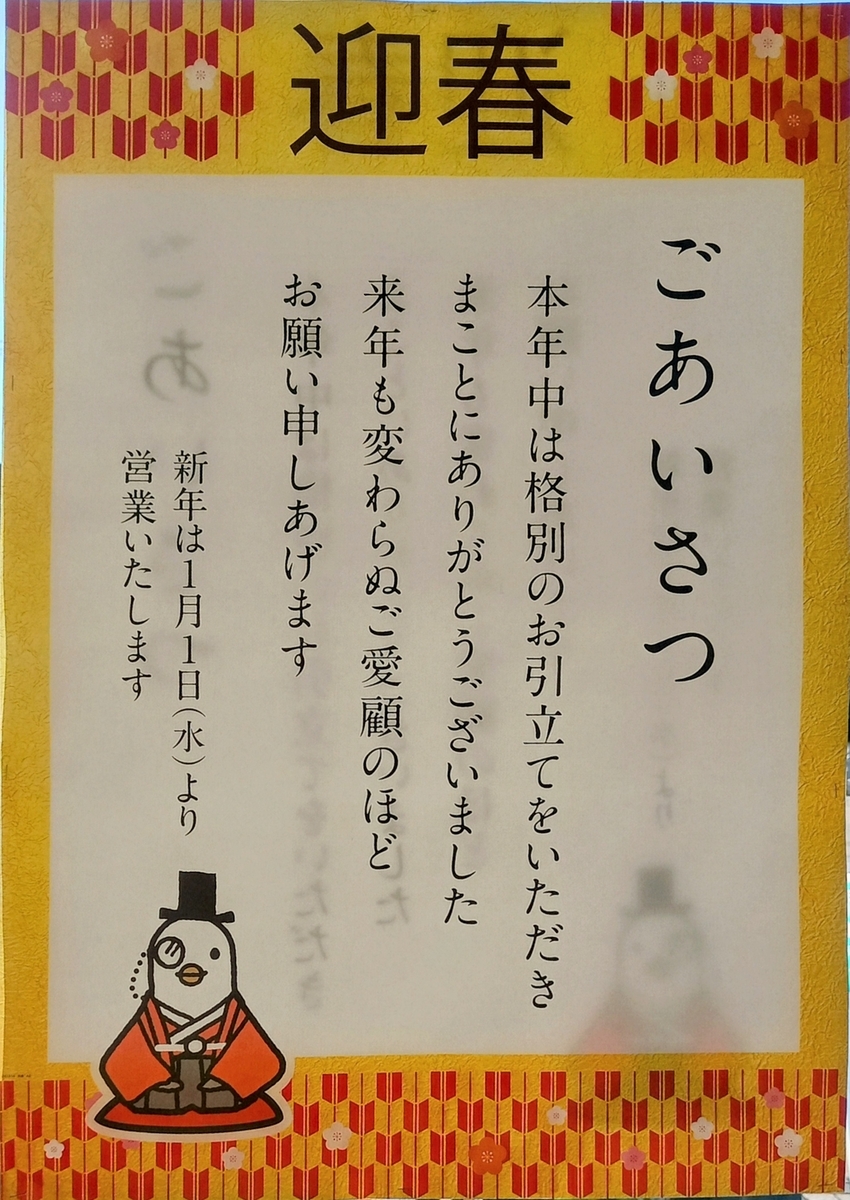 迎春
ごあいさつ
本年中は格別のお引立てをいただき
まことにありがとうございました
来年も変わらぬご愛顧のほど
お願い申しあげます
新年は1月1日(水)より
営業いたします